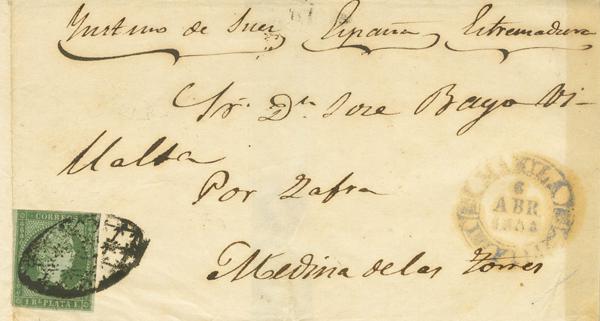 Yustmo de Suez España Estremadura
Sr. Dn. Jose Bayo Vi-
llalba
Por Zafra
Medina de las Torres
MANILA
6
ABR
CORREOS
1 RL. PLATA F.